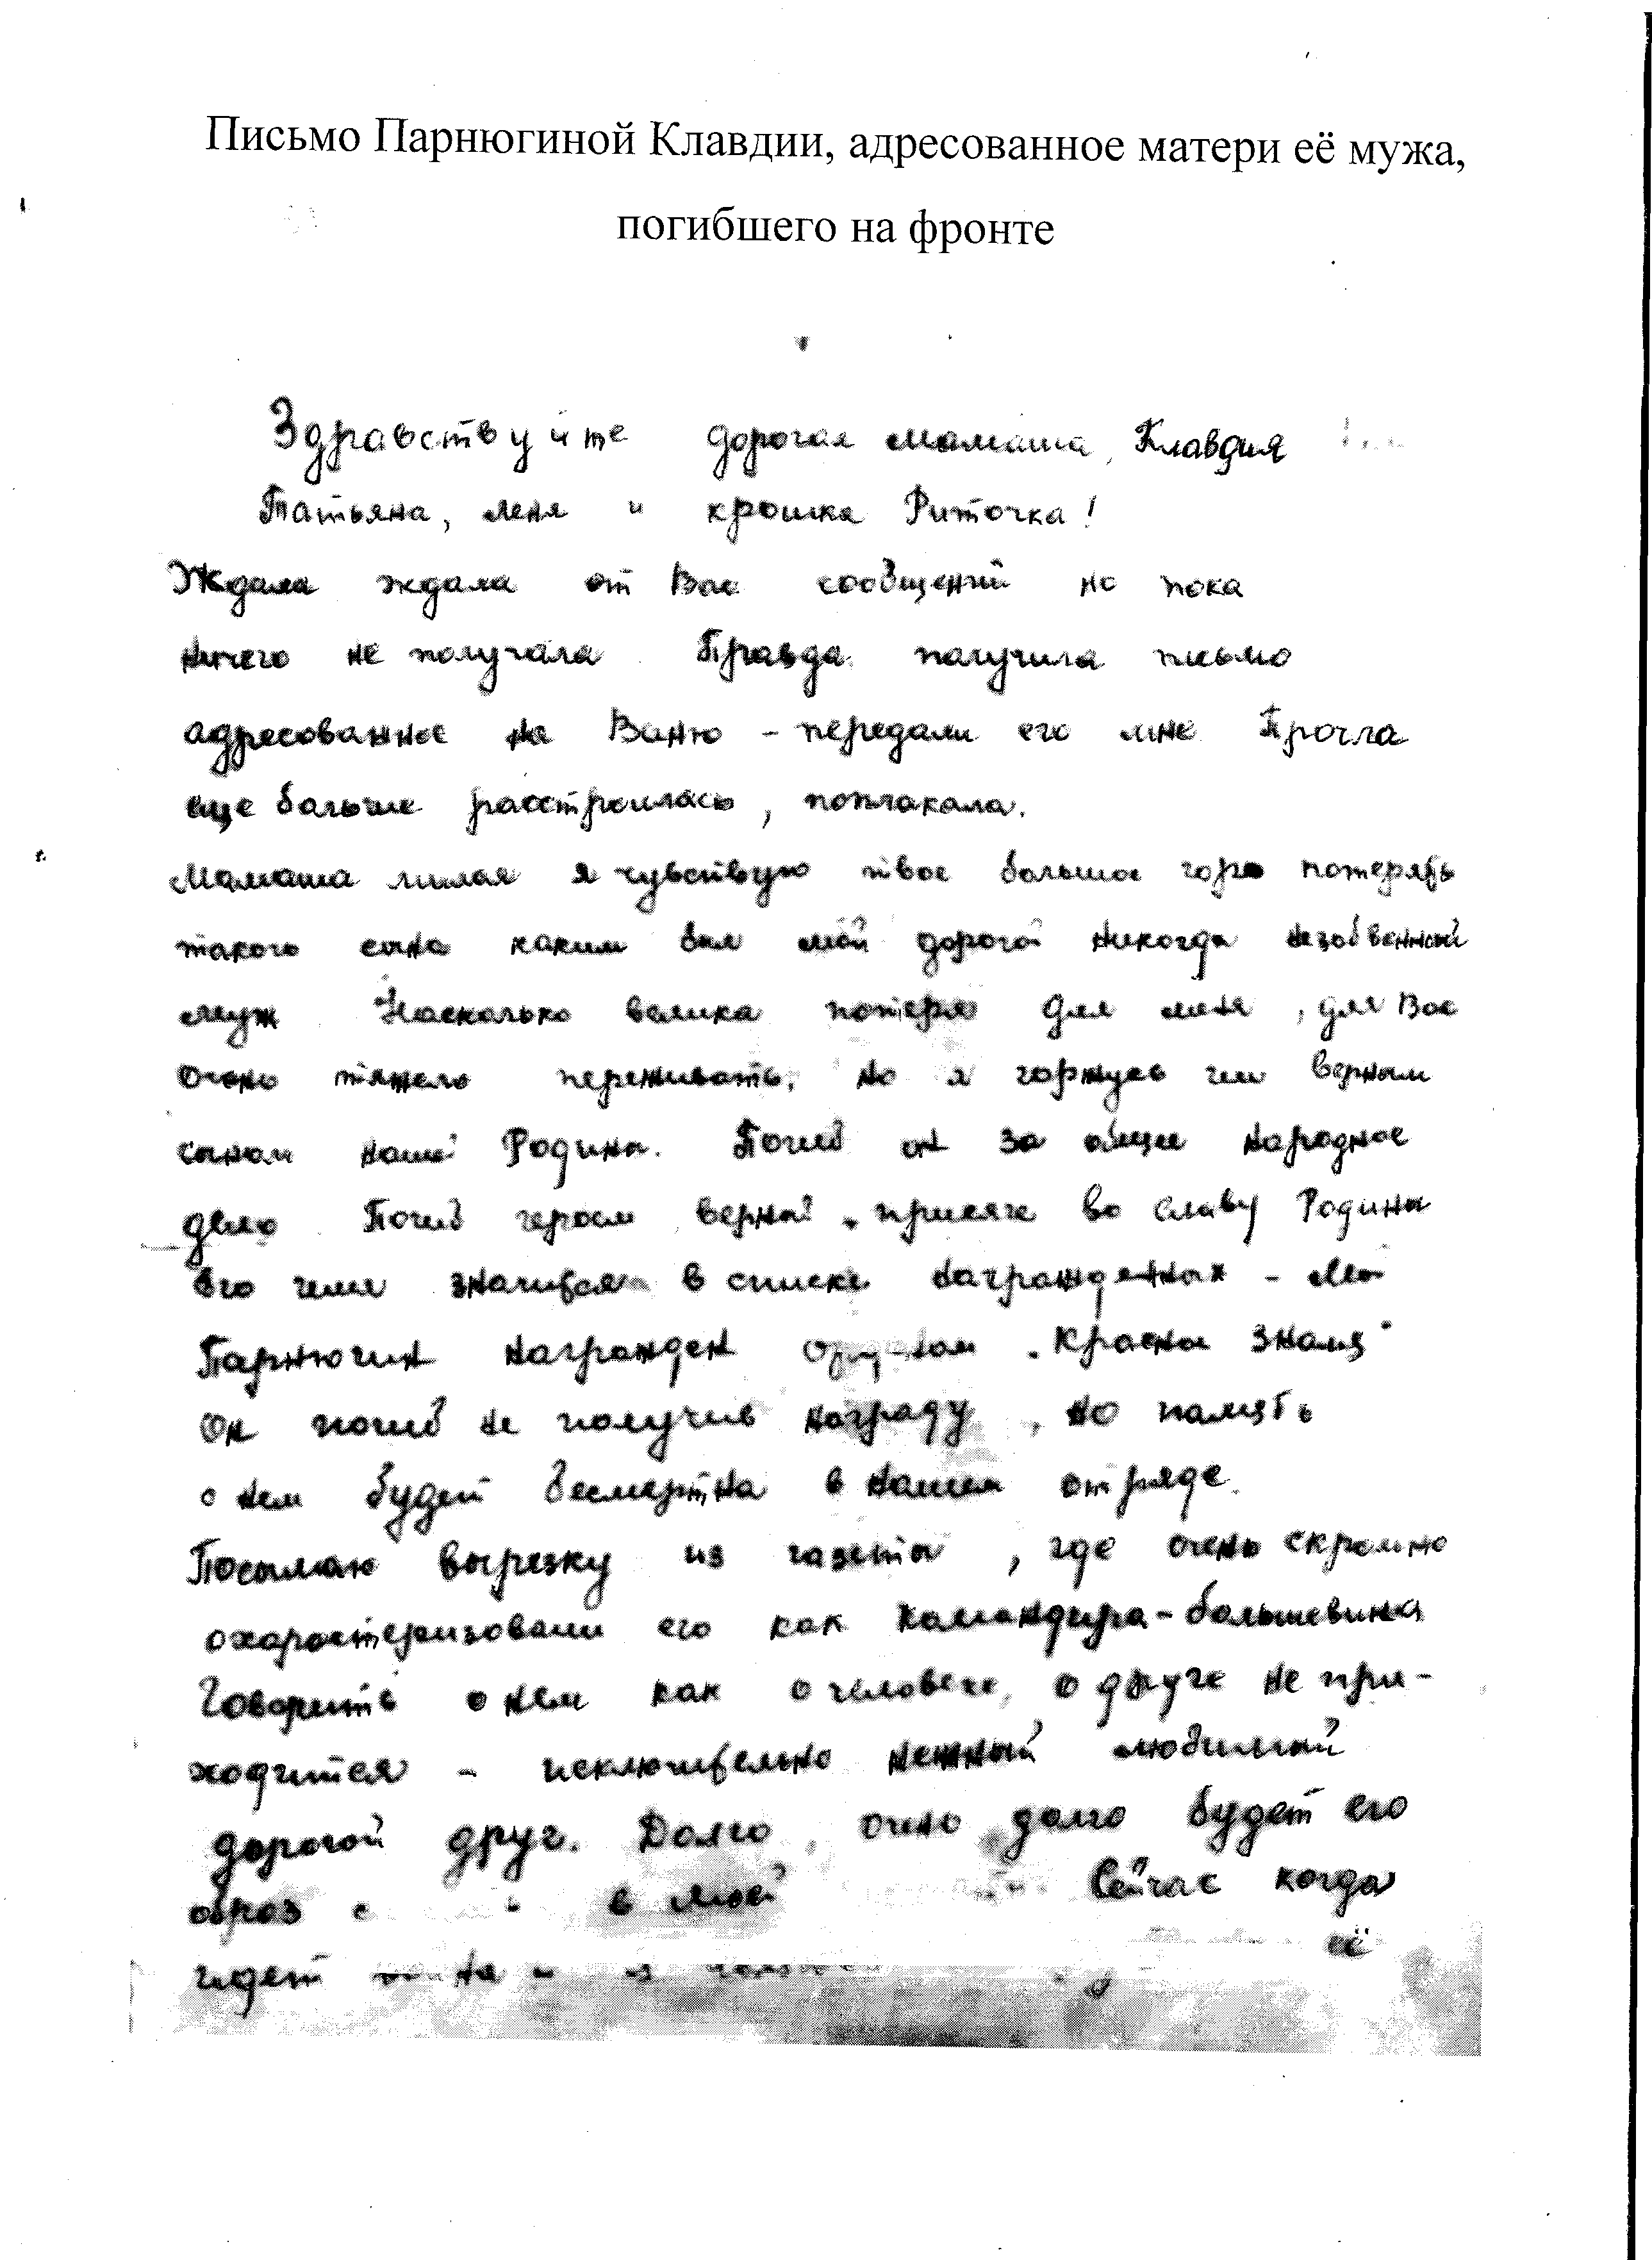 Письмо Парнюгиной Клавдии, адресованное матери её мужа,
погибшего на фронте
Здравствуйте дорогая мамаша, Клавдия
Татьяна, Леня и крошка Риточка!
Ждала ждала от Вас сообщений но пока
ничего не получала Правда получила письмо
адресованное на Ваню - передали его мне Прочла
еще больше расстроилась, поплакала.
Мамаша милая я чувствую твое большое горе потерять
такого сына каким был мой дорогой никогда незабвенный
муж Насколько велика потеря для меня, для Вас
Очень тяжело переживать, но я горжусь им верным
сыном нашей Родины. Погиб он за общее народное
дело Погиб героем верной присяге во славу Родины
Его имя значится в списке награжденных -
Парнюгин награжден орденом "Красное знамя"
Он погиб не получив награду, но память
о нем будет бесмертна в нашем отряде.
Посылаю вырезку из газеты, где очень скромно
охарактеризовали его как командира-большевика
Говорить о нем как о человеке, о друге не при-
ходится - исключительно нежный любимый
дорогой друг. Долго, очень долго будет его
образ в моей Сейчас когда
идет её